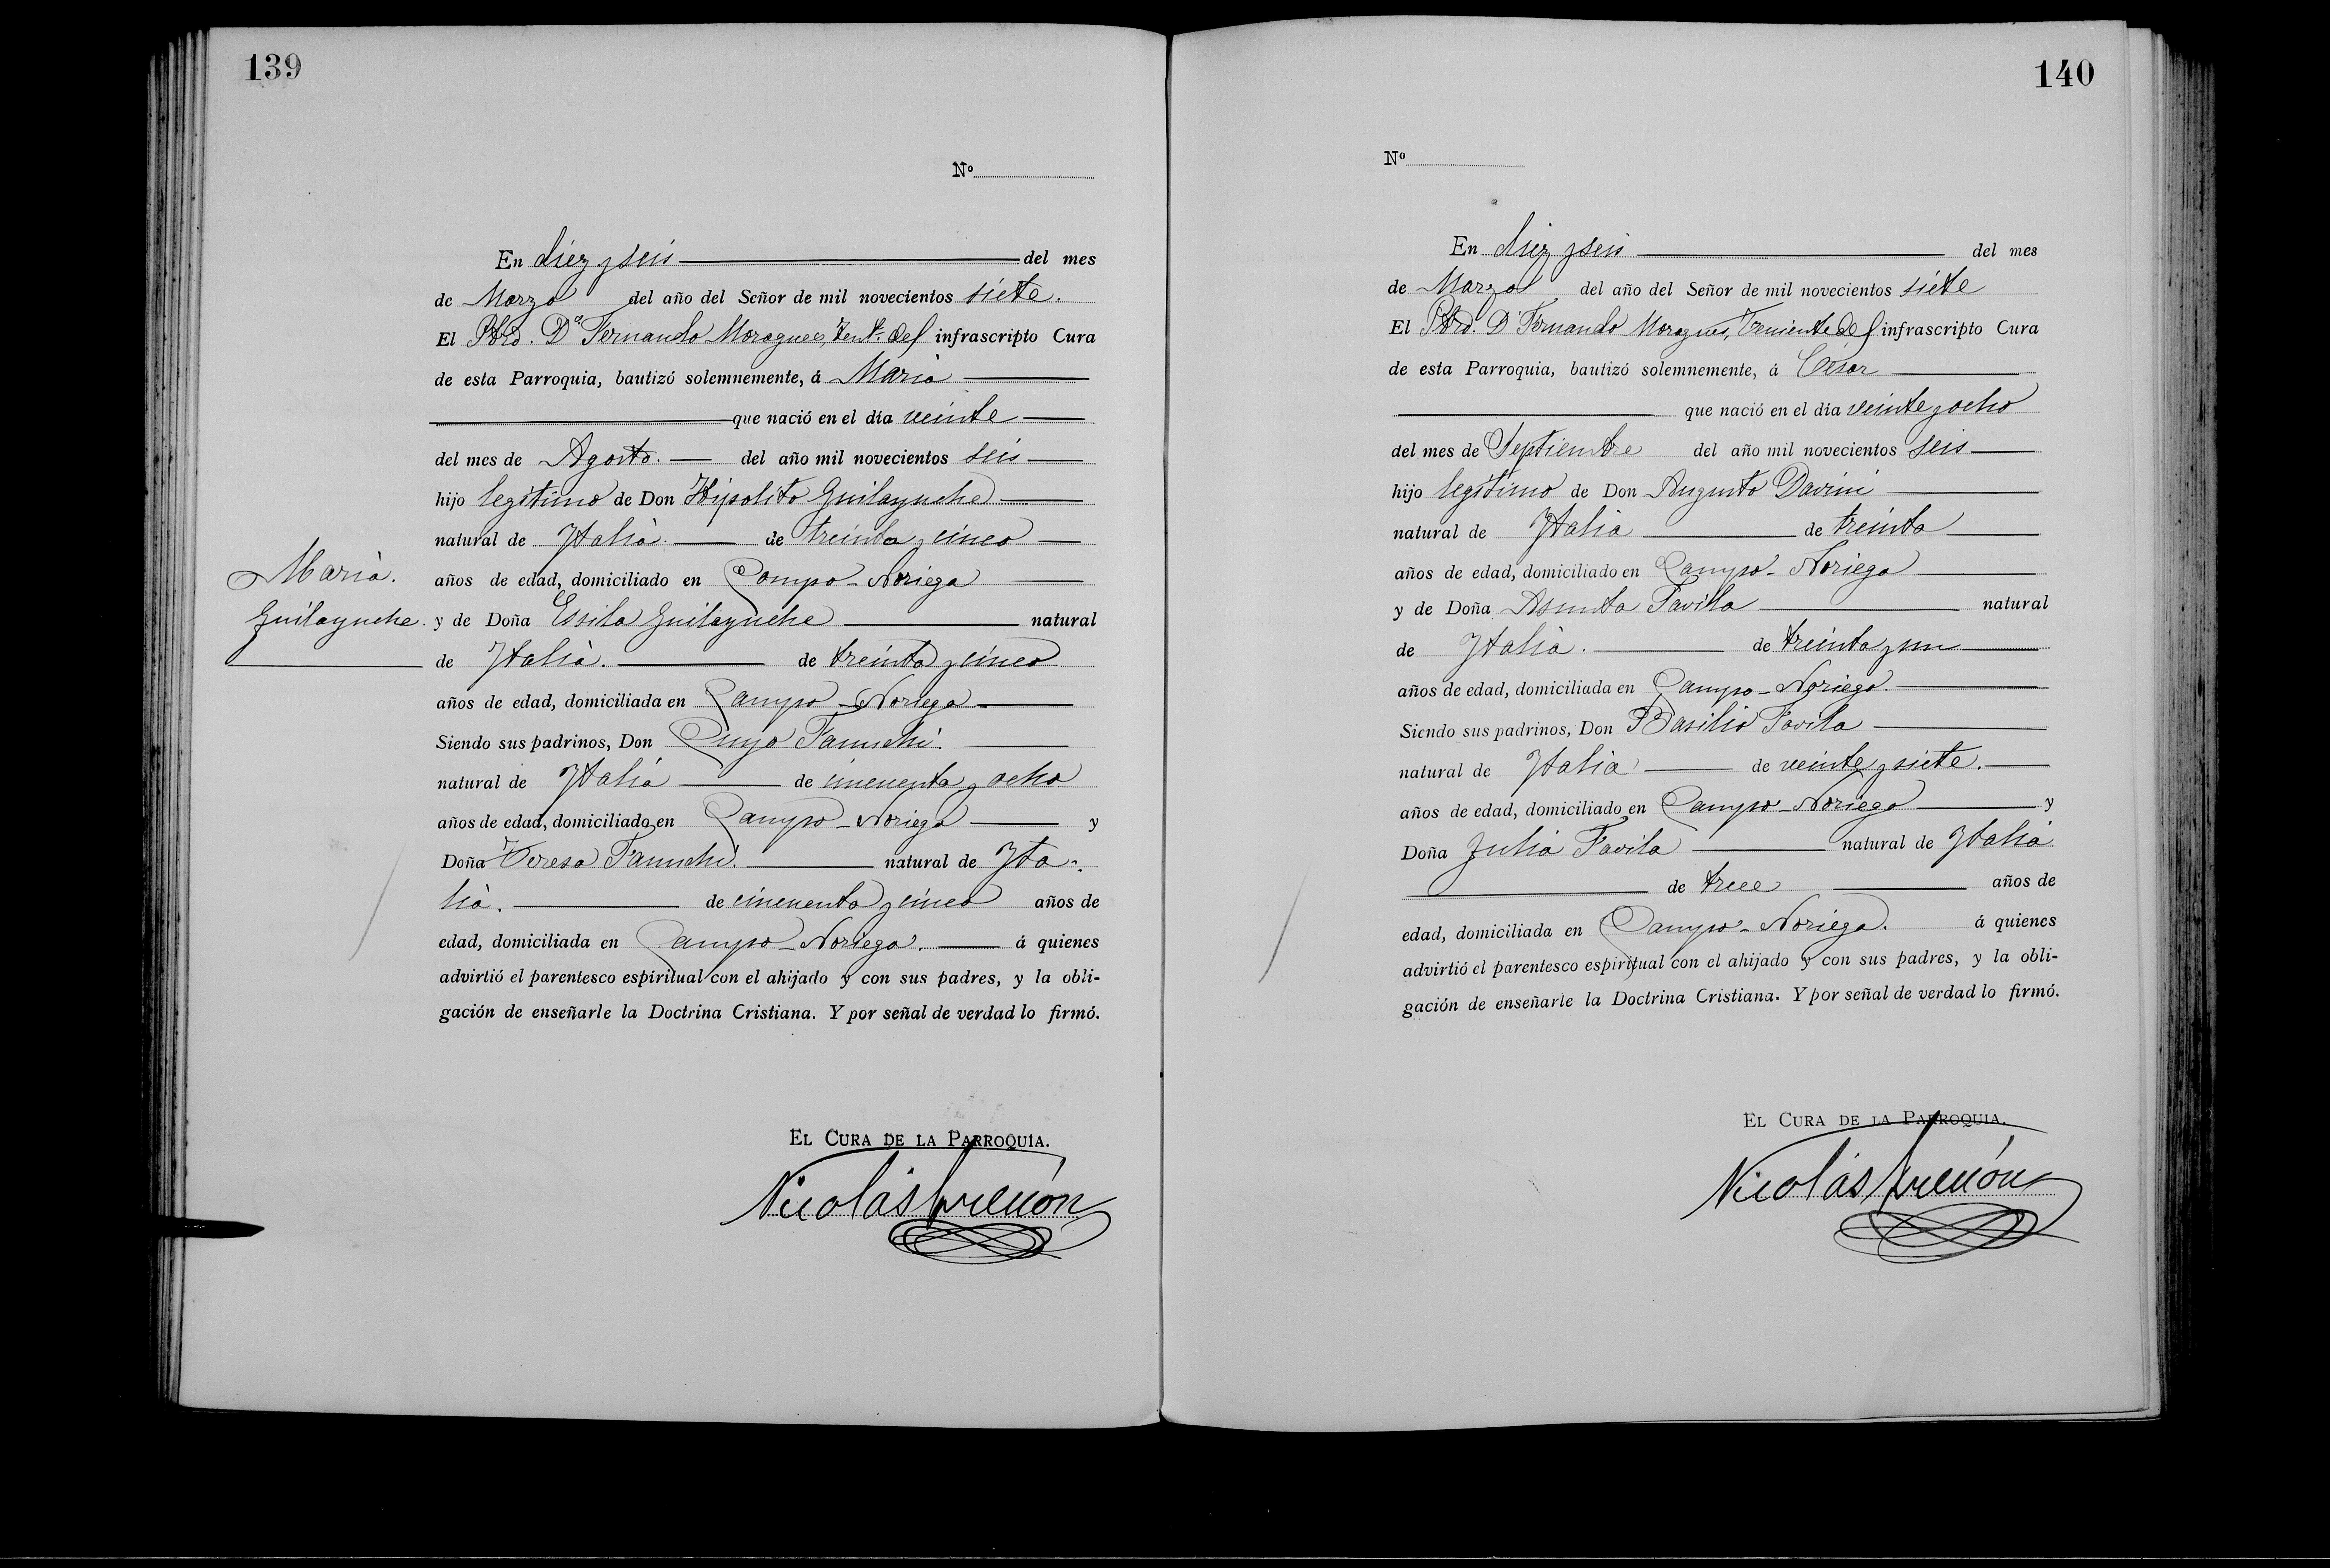 139
Nº
En diez y seis del mes
de Marzo del año del Señor de mil novecientos siete.
El Pbro. Dⁿ Fernando Moragues, Tente. del infrascripto Cura
de esta Parroquia, bautizó solemnemente, á Maria
que nació en el día veinte
del mes de Agosto. del año mil novecientos seis
hijo legítimo de Don Hipolito Guilaynche
natural de Italia. de treinta y cinco
años de edad, domiciliado en Campo-Noriega
Maria.
Guilaynche.
y de Doña Essila Guilaynche natural
de Italia. de treinta y cinco
años de edad, domiciliada en Campo-Noriega
Siendo sus padrinos, Don
natural de Italia de cincuenta y ocho
años de edad, domiciliado en Campo-Noriega y
Doña Teresa natural de Ita-
lia. de cincuenta y cinco años de
edad, domiciliada en Campo-Noriega. á quienes
advirtió el parentesco espiritual con el ahijado y con sus padres, y la obli-
gación de enseñarle la Doctrina Cristiana. Y por señal de verdad lo firmó.
EL CURA DE LA PARROQUIA.
Nicolás
140
Nº
En diez y seis del mes
de Marzo del año del Señor de mil novecientos siete
El Pbro. D Fernando Moragues, Teniente del infrascripto Cura
de esta Parroquia, bautizó solemnemente, á César
que nació en el día veinte y ocho
del mes de Septiembre del año mil novecientos seis
hijo legítimo de Don Augusto Davini
natural de Italia de treinta
años de edad, domiciliado en Campo-Noriega
y de Doña Asunta Favila natural
de Italia. de treinta y un
años de edad, domiciliada en Campo-Noriega.
Siendo sus padrinos, Don Basilio Favila
natural de Italia de veinte y siete.
años de edad, domiciliado en Campo-Noriega y
Doña Julia Favila natural de Italia
de trece años de
edad, domiciliada en Campo-Noriega. á quienes
advirtió el parentesco espiritual con el ahijado y con sus padres, y la obli-
gación de enseñarle la Doctrina Cristiana. Y por señal de verdad lo firmó.
EL CURA DE LA PARROQUIA.
Nicolás